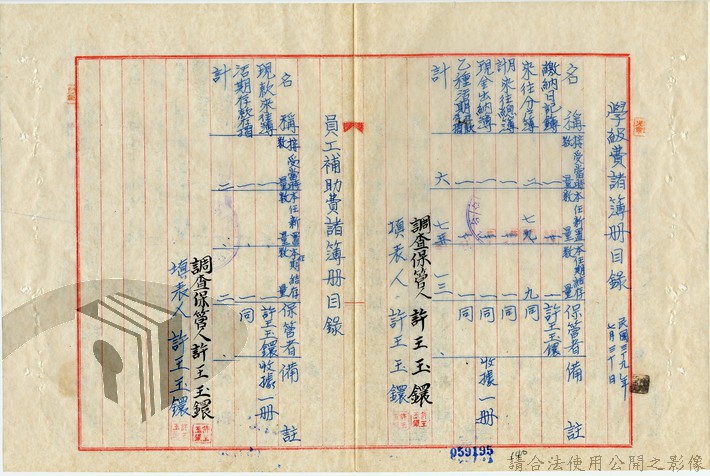 學級費諸簿冊目錄
民國三十九年
七月三十日
名稱 接受當時數量 本任新置數量 本任期結存數量 保管者 備註
繳納日記簿 一 一 許王玉鐶
來往分簿 二 七 九 同
來往總簿 一 一 同
現金出納簿 一 一 同 收據一冊
乙種活期存款存摺 一 一 同
計 六 七 一三
調查保管人 許王玉鐶
填表人 許王玉鐶
員工補助費諸簿冊目錄
名稱 接受當時數量 本任新置數量 本期結存數量 保管者 備註
現款來往簿 一 一 許王玉鐶 收據一冊
活期存款存摺 一 一 同
計 二 二
調查保管人 許王玉鐶
填表人 許王玉鐶
059195
請合法使用公開之影像